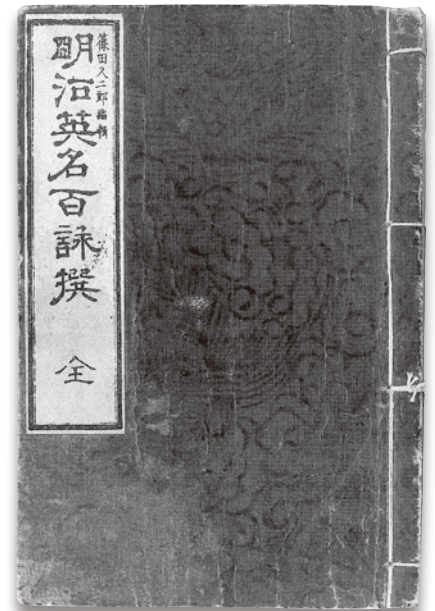 篠田久二郎編輯
明治英名百詠撰
全